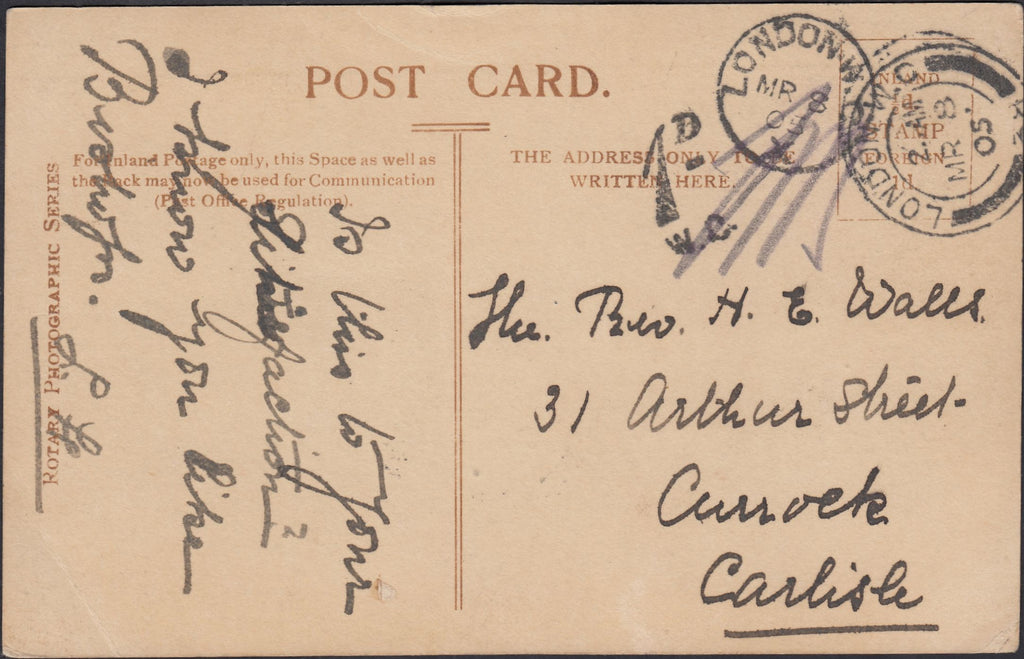 POST CARD.
For Inland Postage only, this Space as well as
the back may now be used for Communication
(Post Office Regulation).
THE ADDRESS ONLY TO BE
WRITTEN HERE.
INLAND
½d
STAMP
FOREIGN
1d
ROTARY PHOTOGRAPHIC SERIES
LONDON.W.
MR 8
05
LONDON W.C
AM
MR 8
05
D
W.C.
Is this to your
Satisfaction?
I know you like
The. Rev. H. E. Walls.
31 Arthur Street
Currock
Carlisle